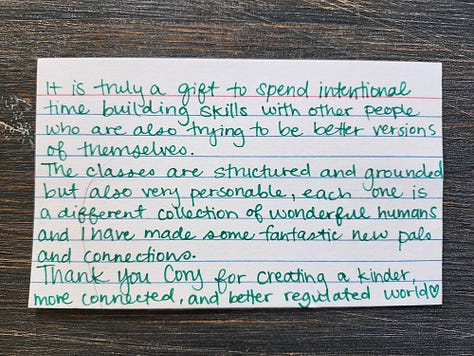 It is truly a gift to spend intentional
time building skills with other people
who are also trying to be better versions
of themselves.
The classes are structured and grounded
but also very personable, each one is
a different collection of wonderful humans
and I have made some fantastic new pals
and connections.
Thank you Cory for creating a kinder,
more connected, and better regulated world♡